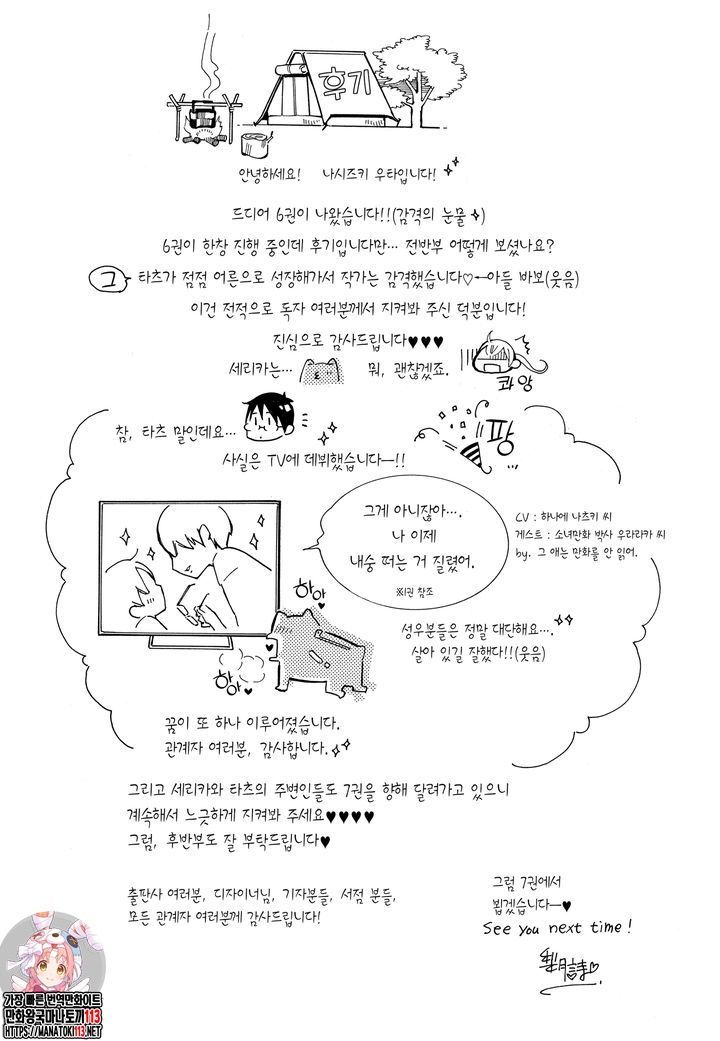 후기
안녕하세요! 나시즈키 우타입니다!
드디어 6권이 나왔습니다!!(감격의 눈물✦)
6권이 한창 진행 중인데 후기입니다만… 전반부 어떻게 보셨나요?
그 타츠가 점점 어른으로 성장해가서 작가는 감격했습니다♡←아들 바보(웃음)
이건 전적으로 독자 여러분께서 지켜봐 주신 덕분입니다!
진심으로 감사드립니다♥♥♥
세리카는… 뭐, 괜찮겠죠.
콰앙
참, 타츠 말인데요…
팡
사실은 TV에 데뷔했습니다―!!
그게 아니잖아….
나 이제
내숭 떠는 거 질렸어.
※1권 참조
CV : 하나에 나츠키 씨
게스트 : 소녀만화 박사 우라라카 씨
by. 그 애는 만화를 안 읽어.
하아
하아♥
성우분들은 정말 대단해요….
살아 있길 잘했다!!(웃음)
꿈이 또 하나 이루어졌습니다.
관계자 여러분, 감사합니다.
그리고 세리카와 타츠의 주변인들도 7권을 향해 달려가고 있으니
계속해서 느긋하게 지켜봐 주세요♥♥♥♥
그럼, 후반부도 잘 부탁드립니다♥
출판사 여러분, 디자이너님, 기자분들, 서점 분들,
모든 관계자 여러분께 감사드립니다!
그럼 7권에서
뵙겠습니다―♥
See you next time !
가장 빠른 번역만화이트
만화왕국마나토끼113
HTTPS://MANATOKI113.NET